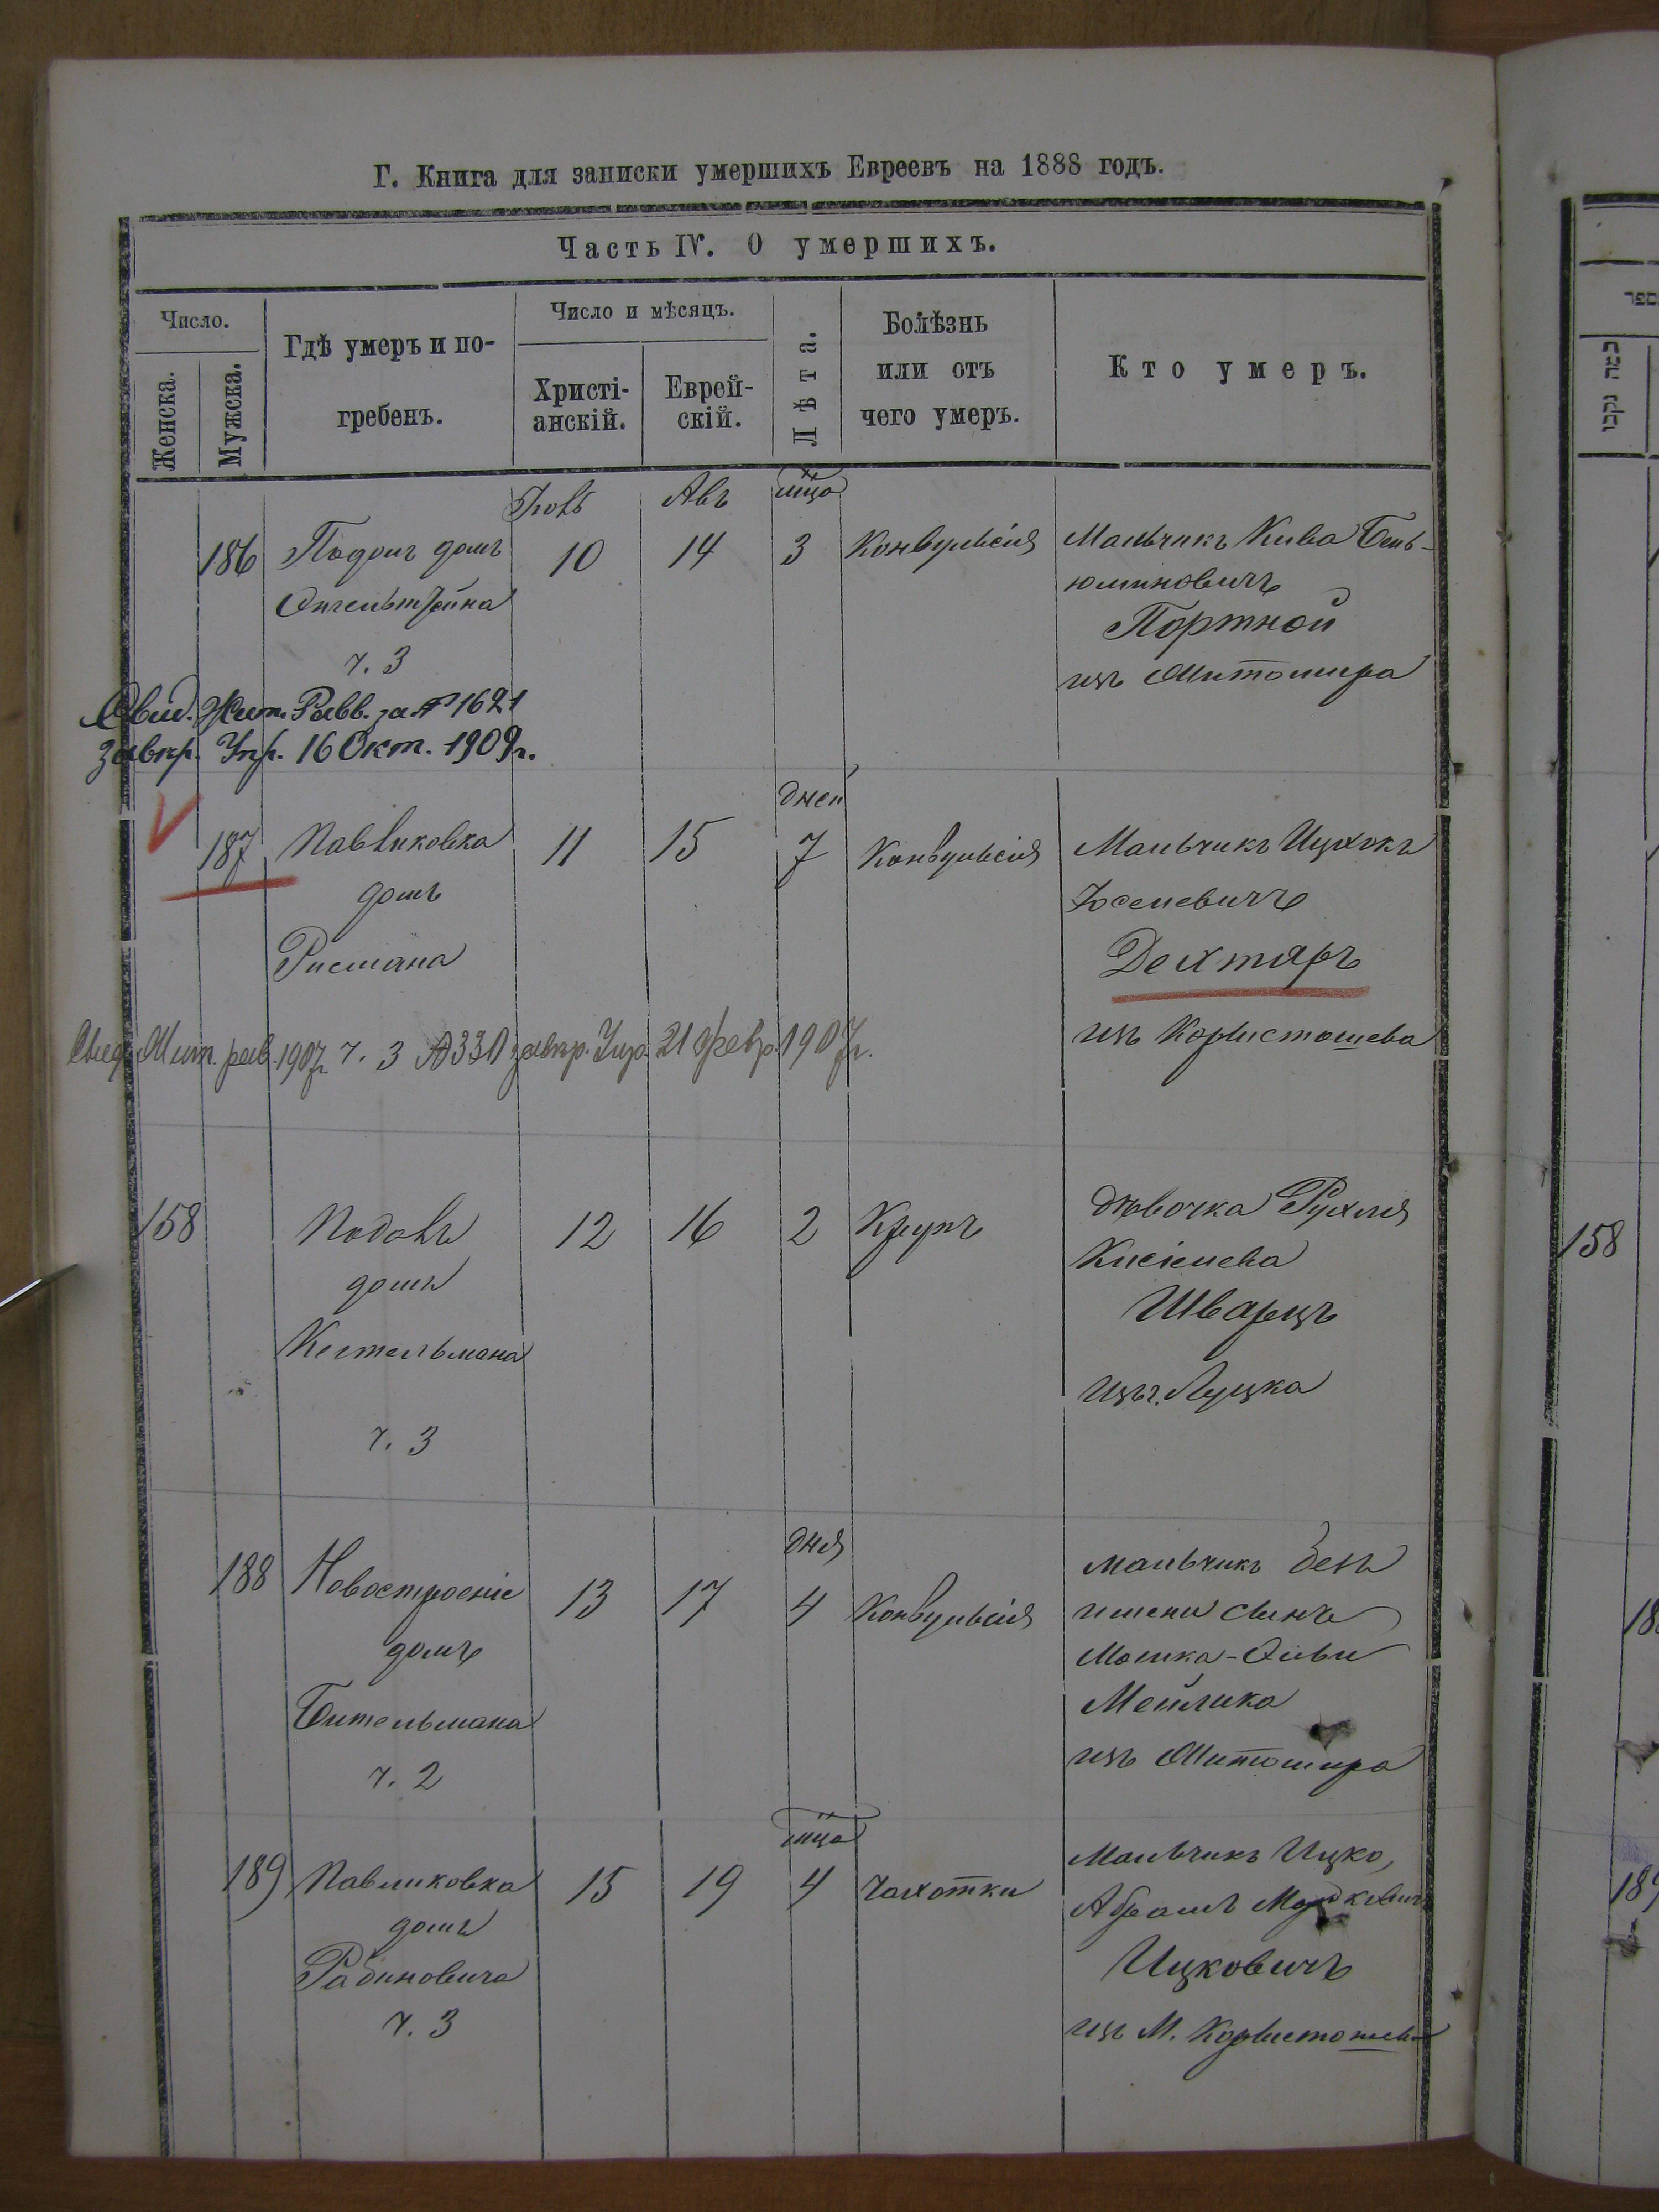 Г. Книга для записки умершихъ Евреевъ на 1888 годъ.
Часть IV. О умершихъ.
Число.
Женска.
Мужска.
Гдѣ умеръ и по-
гребенъ.
Число и мѣсяцъ.
Христі-
анскій.
Еврей-
скій.
Лѣта.
Болѣзнь
или отъ
чего умеръ.
Кто умеръ.
Авъ
мца
186 домъ 10 14 3 Конвульсія Мальчикъ Кива Бень-
юминовичъ
Портной
ч. 3
изъ Житомира
Свид. Жит. Равв. за № 1621
завѣр. Упр. 16 Окт. 1909г.
дней
187 Павликовка 11 15 7 Конвульсія Мальчикъ Ицхокъ
домъ
Іоселевичъ
Рисмана
Дехтяръ
изъ Коростышева
Свид. Жит. рав. 1907г. ч. 3 № 330 завѣр. Упр. 21 февр. 1907г.
158 Подолъ 12 16 2 Крупъ дѣвочка Рухля
домъ
Кисілева
Шварцъ
Кестельмана
изъ г. Луцка
ч. 3
дня
188 Новостроеніе 13 17 4 Конвульсія мальчикъ безъ
имени сынъ
домъ
Мошка-
Бительмана
Мейлика
изъ Житомира
ч. 2
мца
189 Павликовка 15 19 4 Чахотки Мальчикъ Ицко,
домъ
Абрамъ Мордковичъ
Рабиновича
Ицковичъ
ч. 3
изъ М. Коростышева
158
189